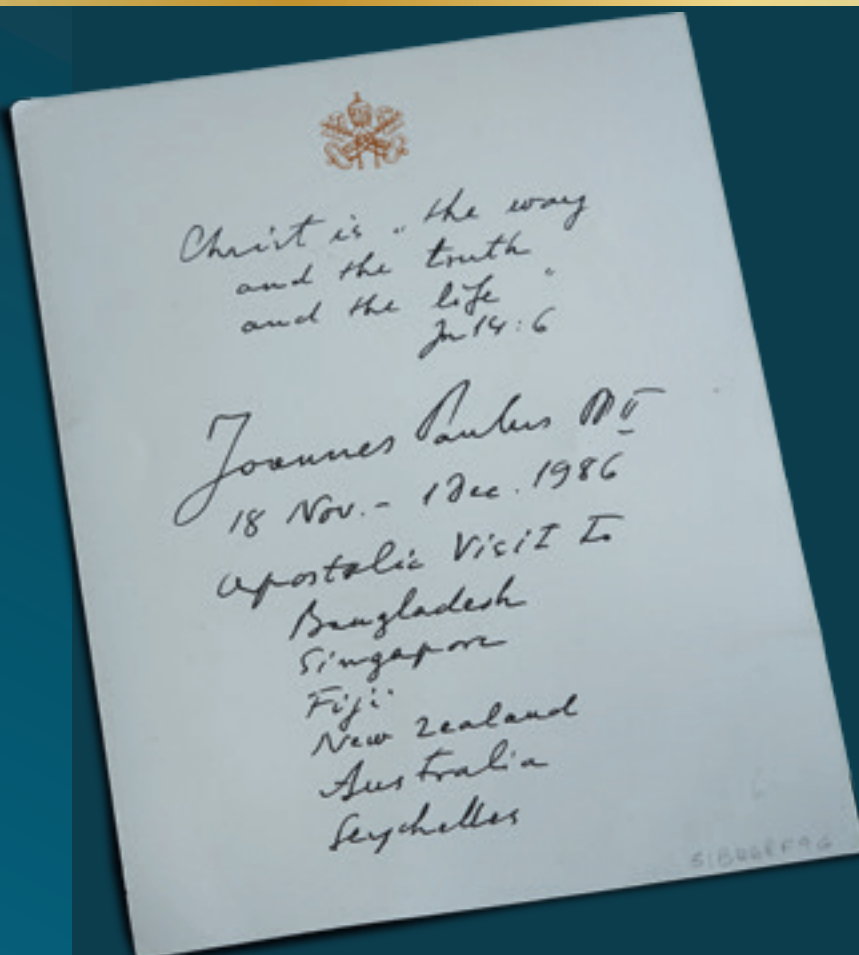 Christ is "the way
and the truth
and the life"
Jn 14:6
Joannes Paulus PP II
18 Nov. - 1 Dec. 1986
Apostolic Visit to
Bangladesh
Singapore
Fiji
New Zealand
Australia
Seychelles